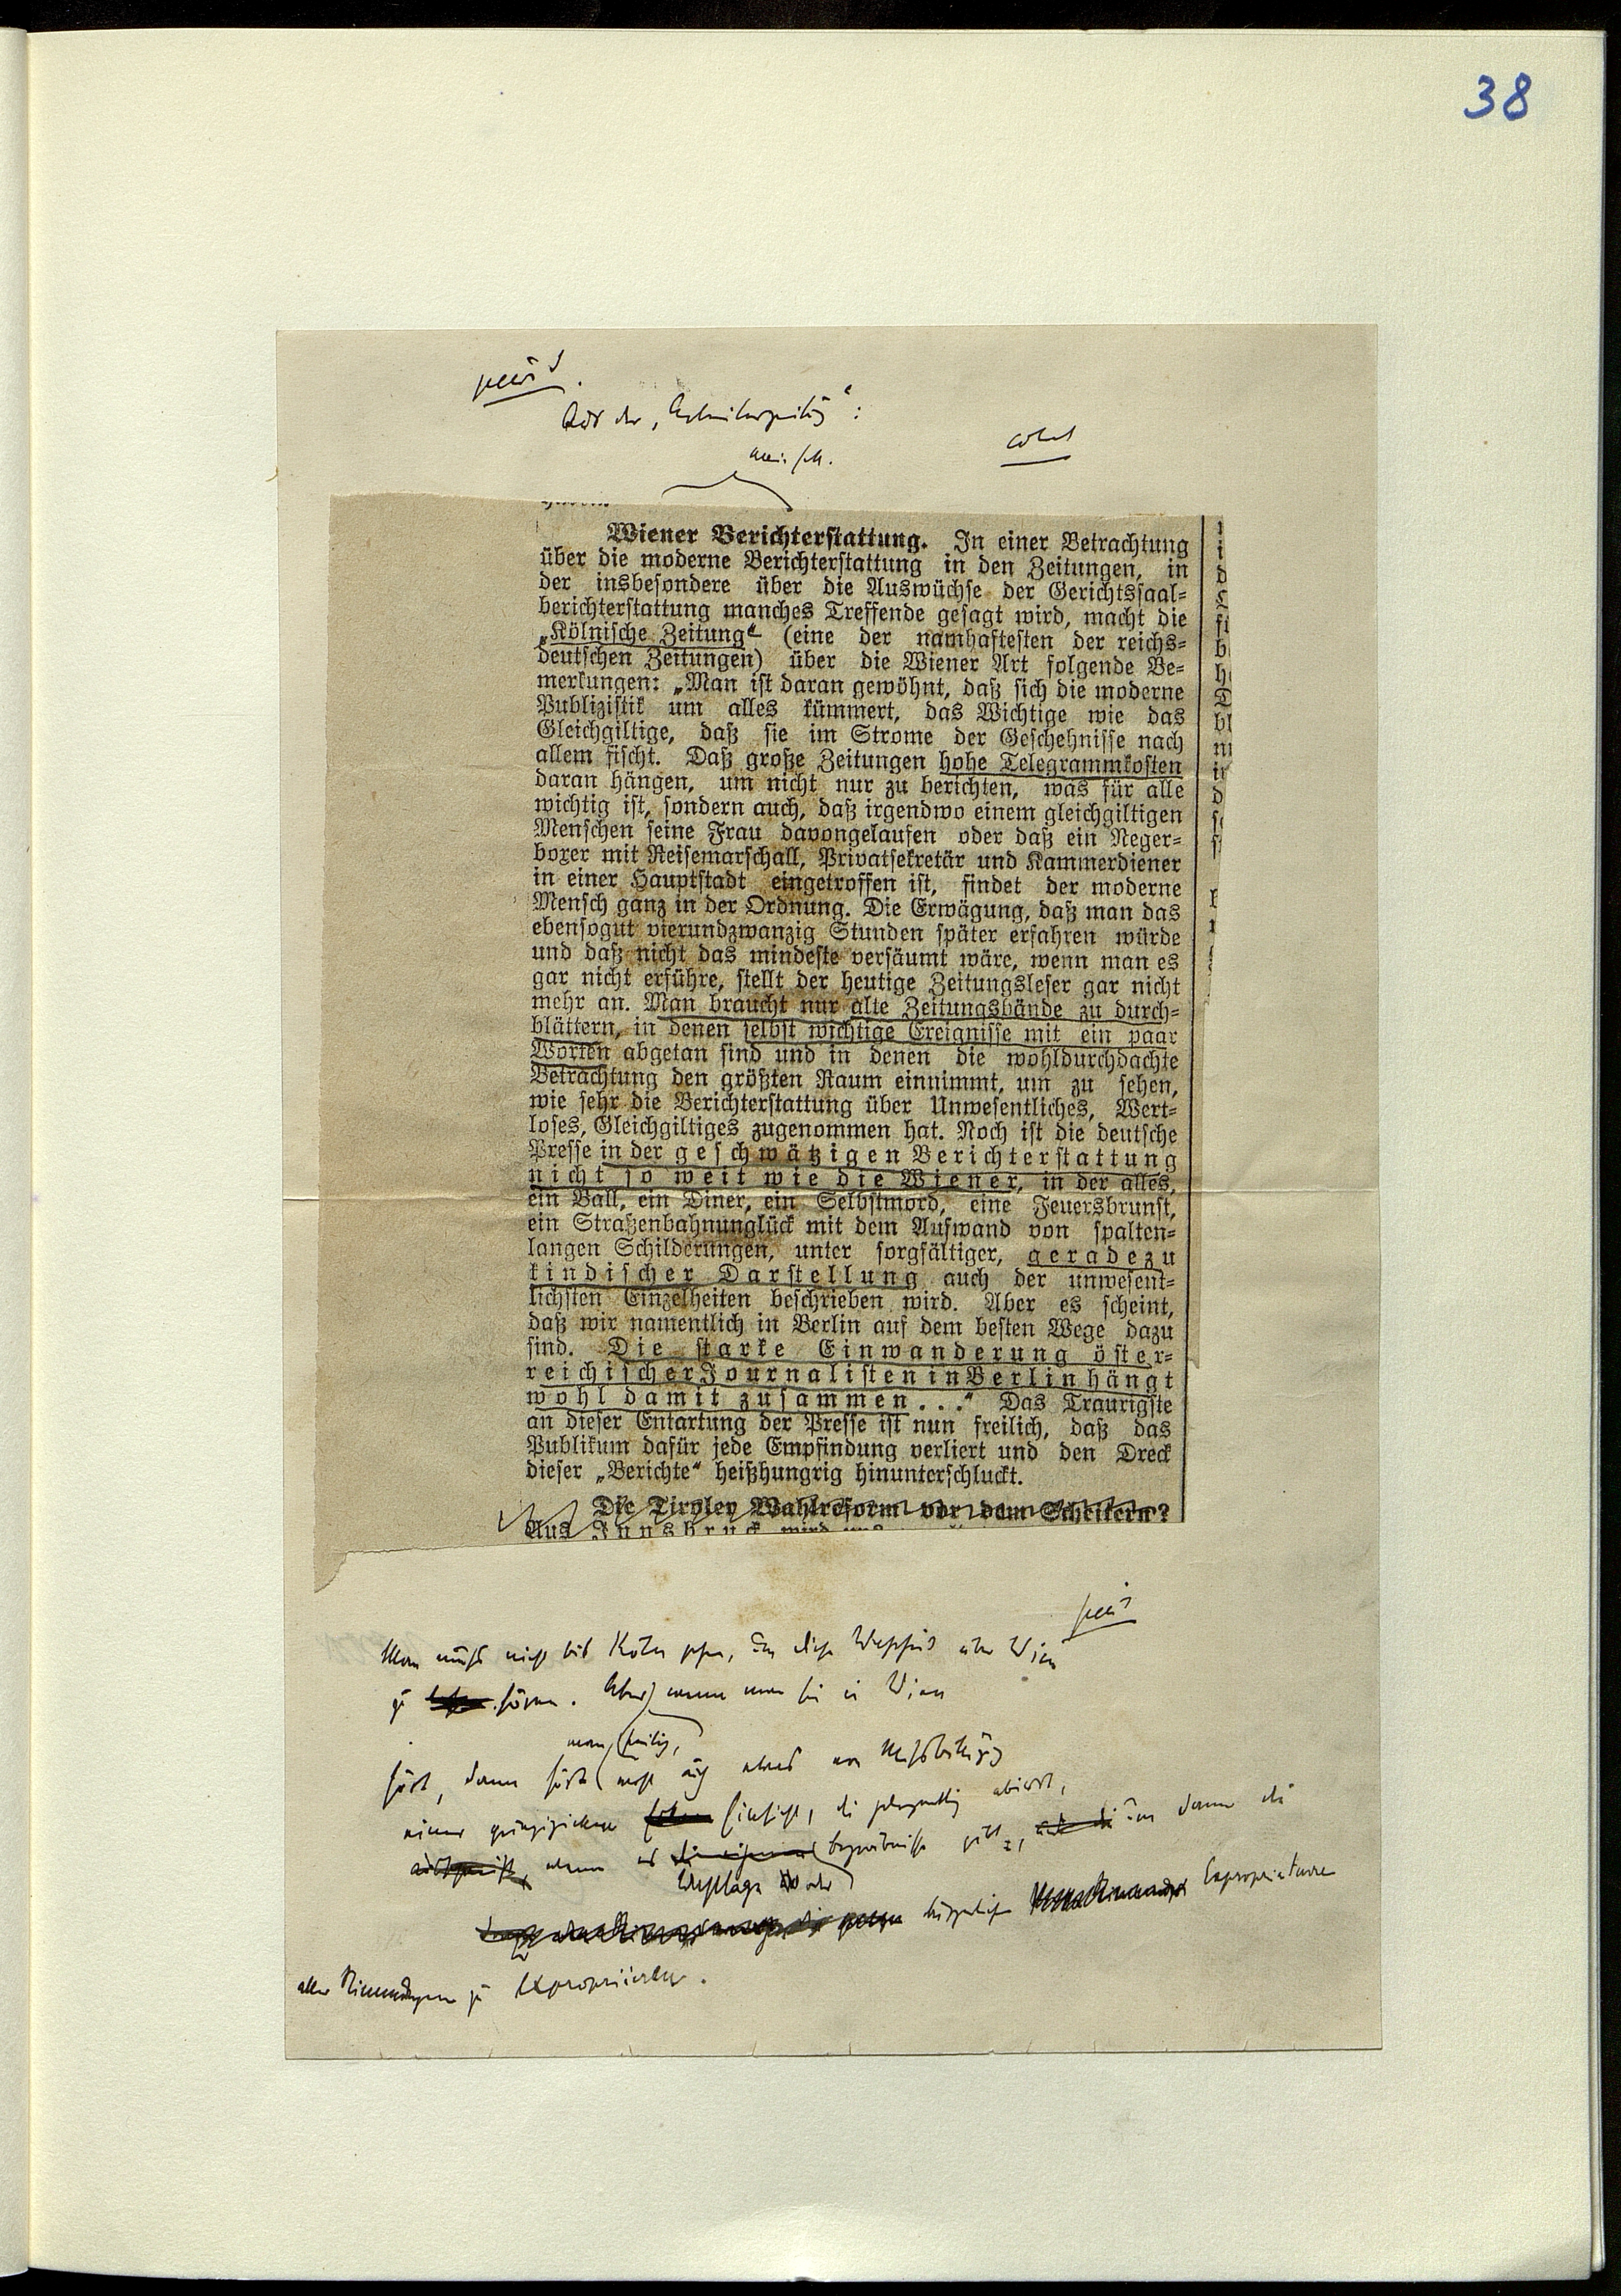 38
Aus der „Arbeiterzeitung“:
Wiener Berichterstattung. In einer Betrachtung
über die moderne Berichterstattung in den Zeitungen, in
der insbesondere über die Auswüchse der Gerichtssaal-
berichterstattung manches Treffende gesagt wird, macht die
„Kölnische Zeitung“ (eine der namhaftesten der reichs-
deutschen Zeitungen) über die Wiener Art folgende Be-
merkungen: „Man ist daran gewöhnt, daß sich die moderne
Publizistik um alles kümmert, das Wichtige wie das
Gleichgiltige, daß sie im Strome der Geschehnisse nach
allem fischt. Daß große Zeitungen hohe Telegrammkosten
daran hängen, um nicht nur zu berichten, was für alle
wichtig ist, sondern auch, daß irgendwo einem gleichgiltigen
Menschen seine Frau davongelaufen oder daß ein Neger-
boxer mit Reisemarschall, Privatsekretär und Kammerdiener
in einer Hauptstadt eingetroffen ist, findet der moderne
Mensch ganz in der Ordnung. Die Erwägung, daß man das
ebensogut vierundzwanzig Stunden später erfahren würde
und daß nicht das mindeste versäumt wäre, wenn man es
gar nicht erführe, stellt der heutige Zeitungsleser gar nicht
mehr an. Man braucht nur alte Zeitungsbände zu durch-
blättern, in denen selbst wichtige Ereignisse mit ein paar
Worten abgetan sind und in denen die wohldurchdachte
Betrachtung den größten Raum einnimmt, um zu sehen,
wie sehr die Berichterstattung über Unwesentliches, Wert-
loses, Gleichgiltiges zugenommen hat. Noch ist die deutsche
Presse in der geschwätzigen Berichterstattung
nicht so weit wie die Wiener, in der alles,
ein Ball, ein Diner, ein Selbstmord, eine Feuersbrunst,
ein Straßenbahnunglück mit dem Aufwand von spalten-
langen Schilderungen, unter sorgfältiger, geradezu
kindischer Darstellung auch der unwesent-
lichsten Einzelheiten beschrieben wird. Aber es scheint,
daß wir namentlich in Berlin auf dem besten Wege dazu
sind. Die starke Einwanderung öster-
reichischer Journalisten in Berlin hängt
wohl damit zusammen...“ Das Traurigste
an dieser Entartung der Presse ist nun freilich, daß das
Publikum dafür jede Empfindung verliert und den Dreck
dieser „Berichte“ heißhungrig hinunterschluckt.
Die Tiroler Wahlreform vor dem Scheitern?
Aus Innsbruck wird uns
Man muß nicht bis Köln gehen, um diese Wahrheit über Wien
zu hören. Aber wenn man sie in Wien
hört, dann hört man
einer
bürgerlichen Expropriateure
aller Meinungen zu expropriieren.